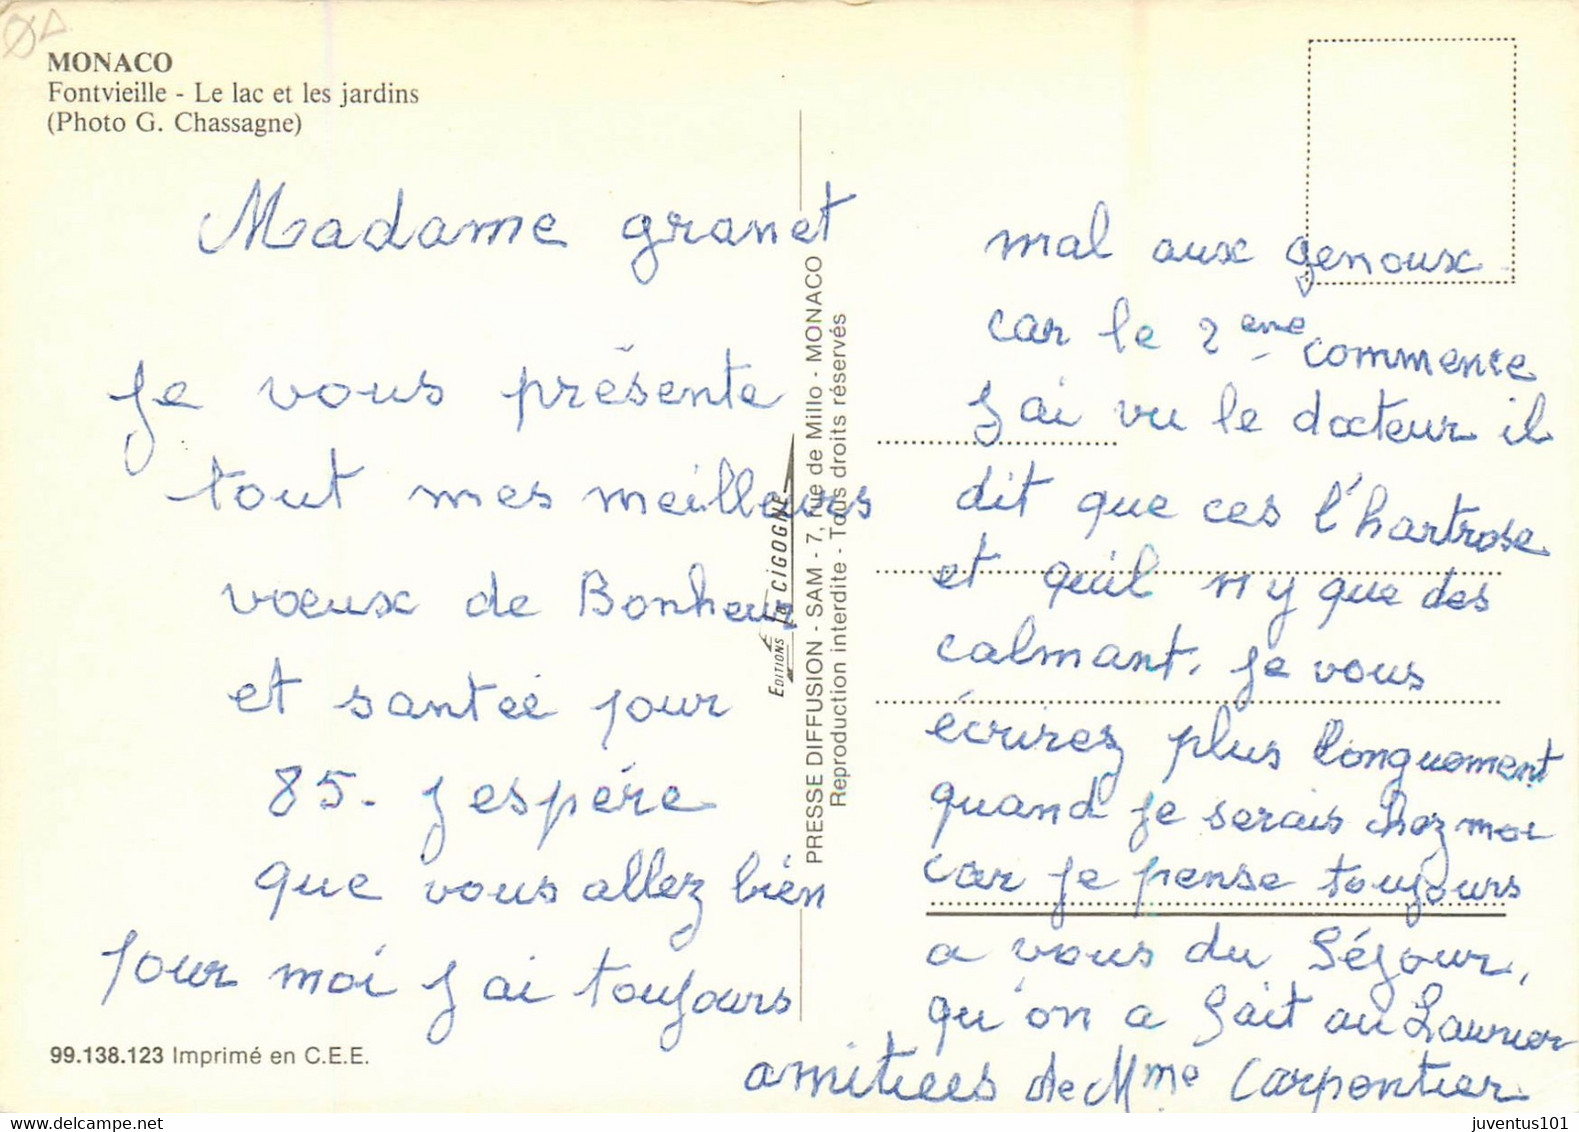 MONACO
Fontvieille - Le lac et les jardins
(Photo G. Chassagne)
Madame granet
je vous présente
tout mes meilleurs
voeux de Bonheur
et santée pour
85. j espére
que vous allez bien
pour moi j ai toujours
99.138.123 Imprimé en C.E.E.
EDITIONS LA CIGOGNE
PRESSE DIFFUSION - SAM - 7, rue de Millo - MONACO
Reproduction interdite - Tous droits réservés
mal aux genoux
car le 2 eme commence
j ai vu le docteur il
dit que ces l'hartrose
et qu'il n y que des
calmant. je vous
écrirez plus longuement
quand je serais chez moi
car je pense toujours
a vous du séjour,
qu'on a fait au Laurier
amitiees de Mme Carpentier
juventus101